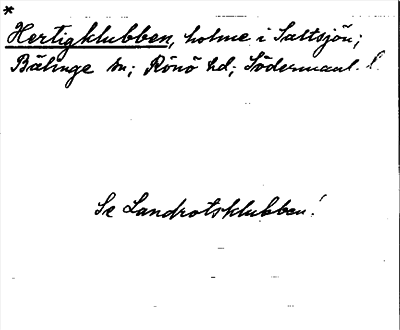 *
Hertigklubben, holme i Saltsjön;
Bälinge sn; Rönö hd; Södermanl. l.
Se Landrotsklubben!